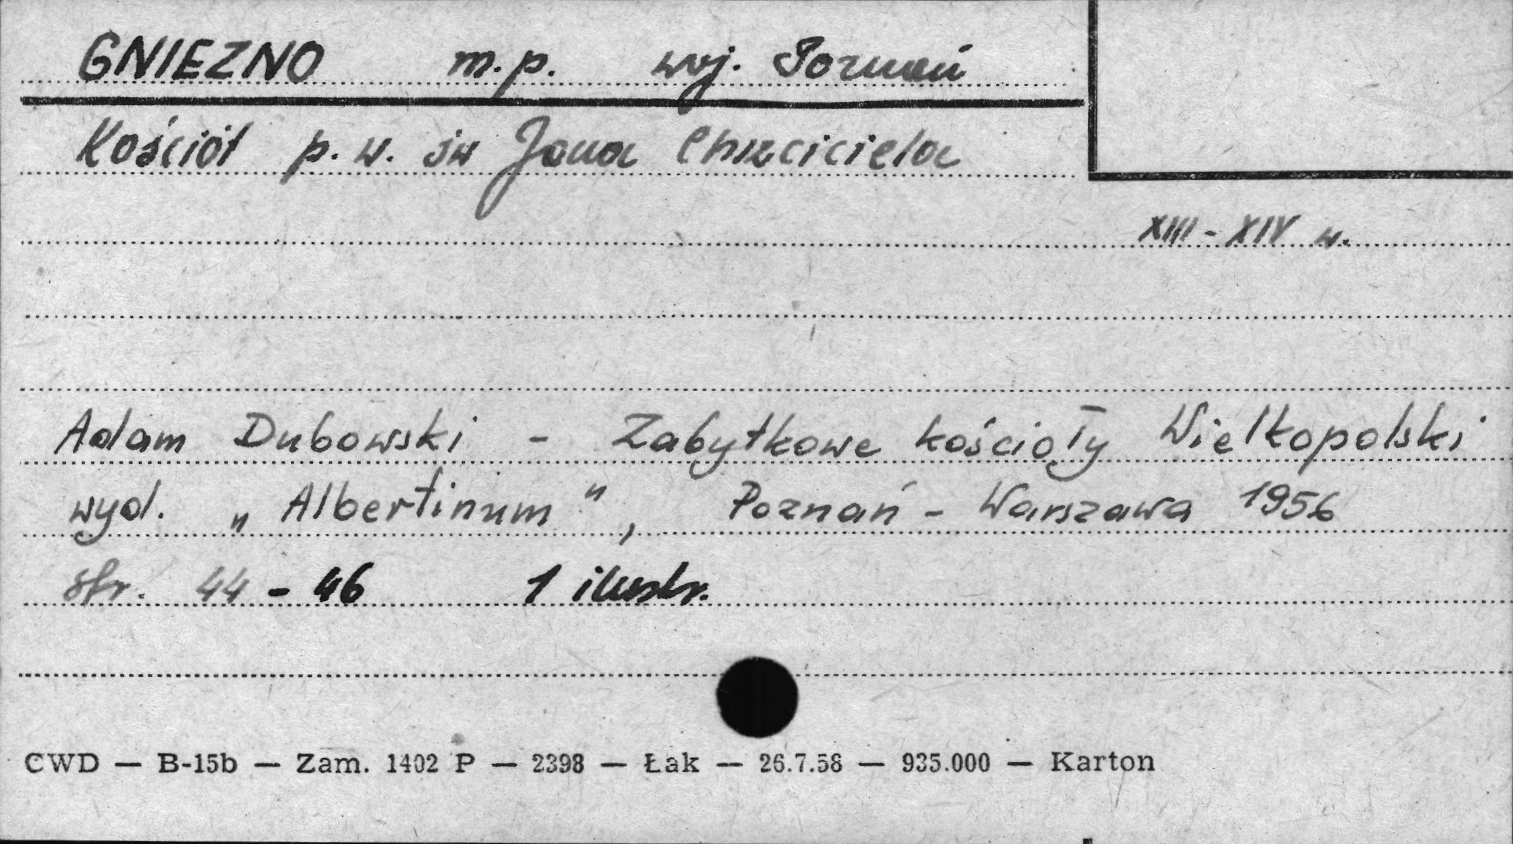 GNIEZNO m.p. woj. Poznań
Kościół p.w. św Jana Chrzciciela
XIII - XIV w.
Adam Dubowski - Zabytkowe kościoły Wielkopolski
wyd. „Albertinum", Poznań - Warszawa 1956
str. 44 - 46 1 ilustr.
CWD — B-15b — Zam. 1402 P — 2398 — Łak — 26.7.58 — 935.000 — Karton